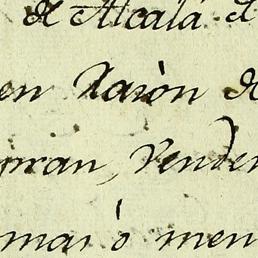 de Alcalá d
en Raròn de
pran, Vender
mas ò men